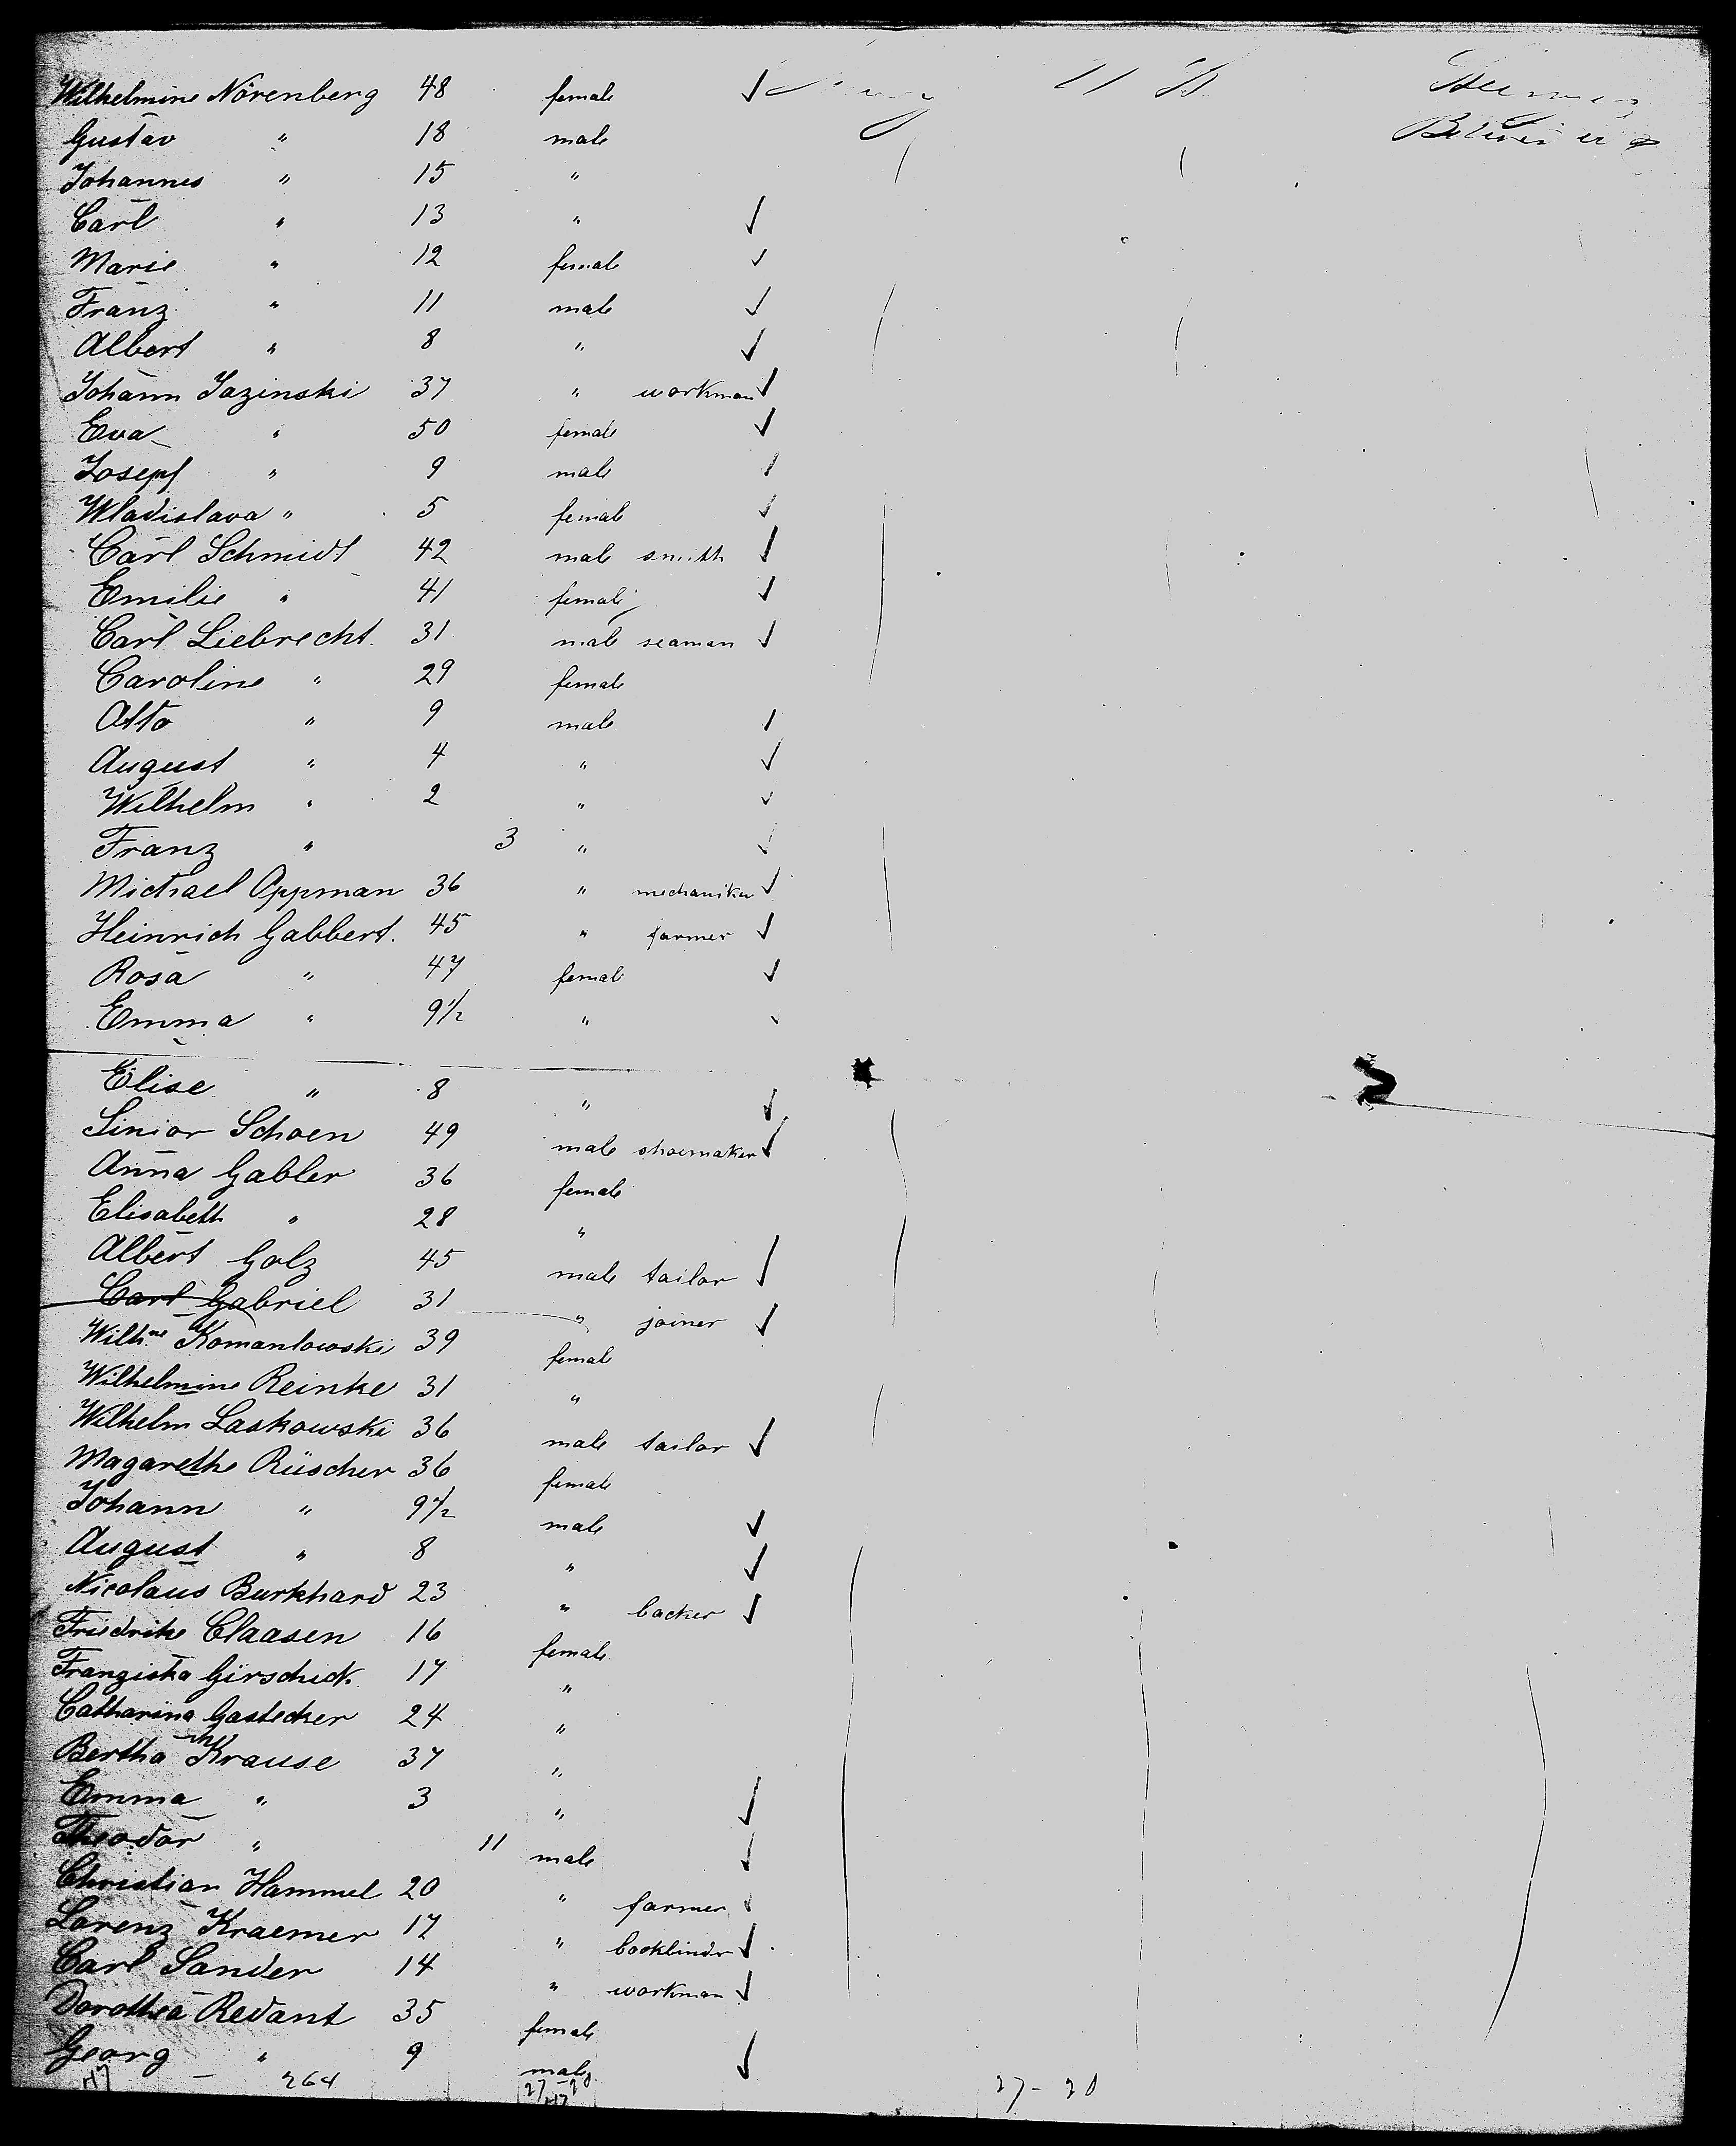 Wilhelmine Nörenberg 48 female ✓
Gustav " 18 male
Johannes " 15 "
Carl " 13 " ✓
Marie " 12 female ✓
Franz " 11 male ✓
Albert " 8 " ✓
Johann Jazinski 37 " workman ✓
Eva " 50 female ✓
Josepf " 9 male ✓
Wladislava " 5 female ✓
Carl Schmidt 42 male smith ✓
Emilie " 41 female ✓
Carl Liebrecht 31 male seaman ✓
Caroline " 29 female
Otto " 9 male ✓
August " 4 " ✓
Wilhelm " 2 " ✓
Franz " 3 " ✓
Michael Oppman 36 " mechaniker ✓
Heinrich Gabbert. 45 " farmer ✓
Rosa " 47 female ✓
Emma " 9½ " ✓
Elise " 8 " ✓
Sinior Schoen 49 male shoemaker ✓
Anna Gabler 36 female
Elisabeth " 28 "
Albert Golz 45 male tailor ✓
Carl Gabriel 31 " joiner ✓
Wilhne Komanlowski 39 female
Wilhelmine Reinke 31 "
Wilhelm Laskowski 36 male tailor ✓
Magarethe Rüscher 36 female
Johann " 9½ male ✓
August " 8 " ✓
Nicolaus Burkhard 23 " backer ✓
Friedrike Claasen 16 female
Franziska Girschick 17 "
Catharina Gastecker 24 "
Bertha Krause 37 "
Emma " 3 " ✓
Theodor " 11 male ✓
Christian Hammel 20 " farmer ✓
Lorenz Kraemer 17 " bookbindr ✓
Carl Sander 14 " workman ✓
Dorothea Redant 35 female
Georg " 9 male ✓
47 264 27-20 27-20
47